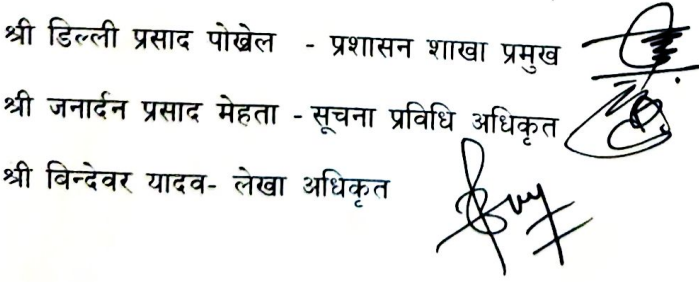 श्री डिल्ली प्रसाद पोखेल - प्रशासन शाखा प्रमुख
श्री जनार्दन प्रसाद मेहता - सूचना प्रविधि अधिकृत
श्री विन्देवर यादव- लेखा अधिकृत